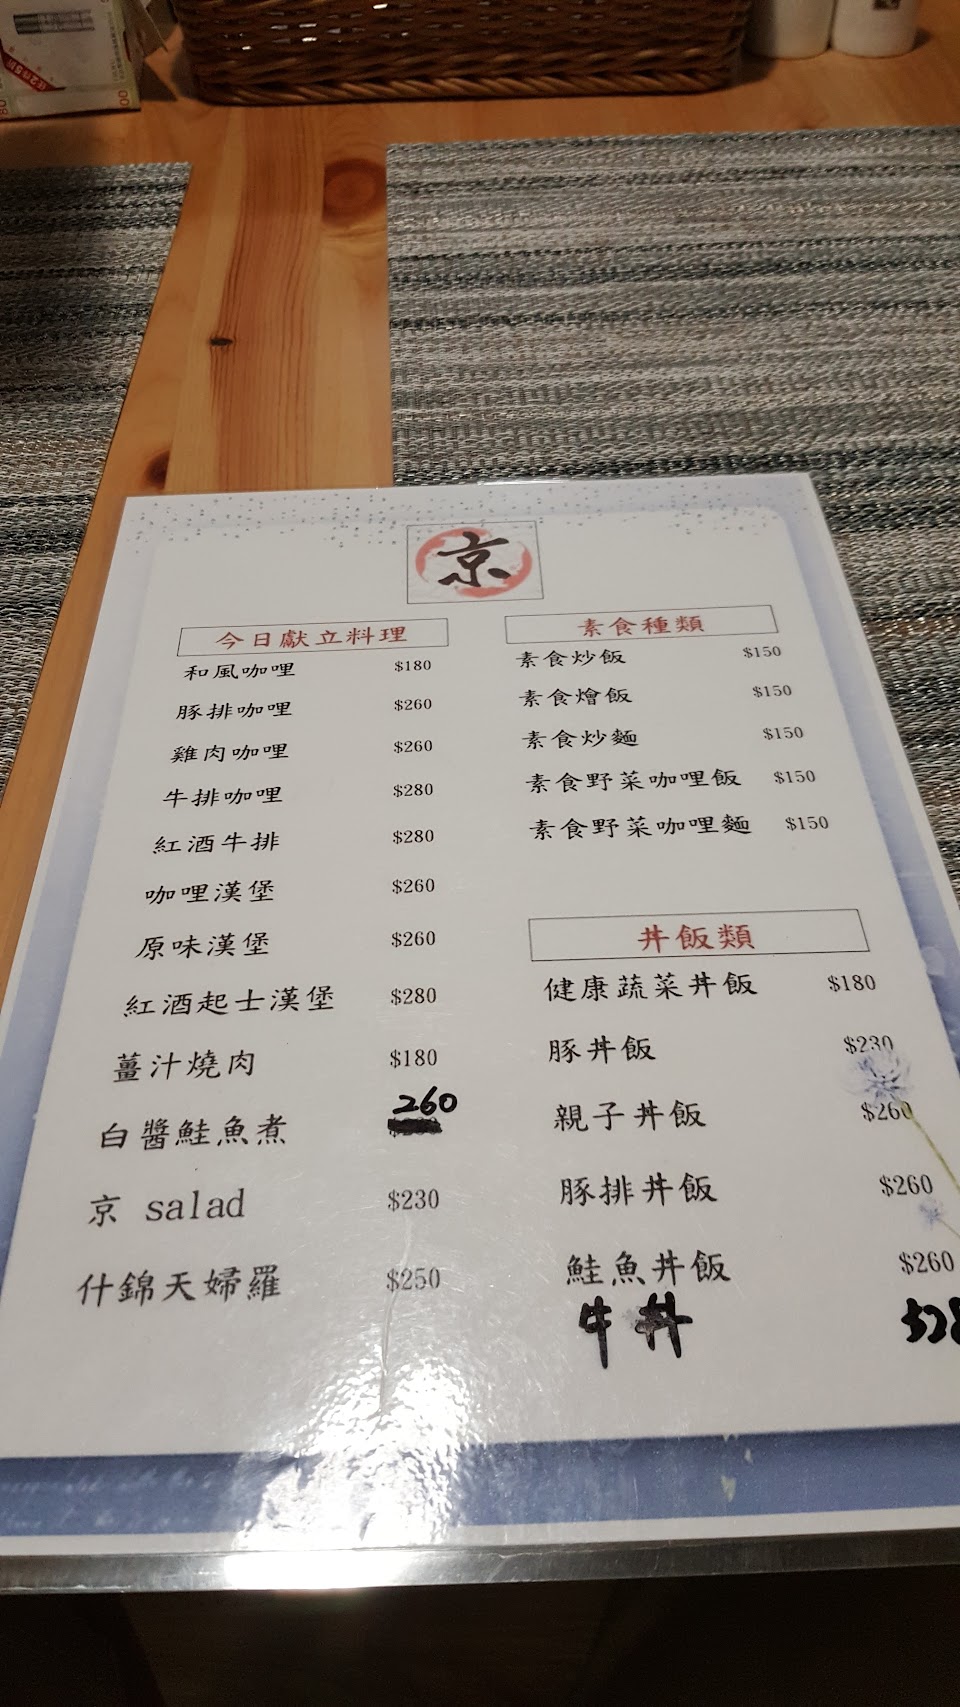 京
今日獻立料理
和風咖哩 $180
豚排咖哩 $260
雞肉咖哩 $260
牛排咖哩 $280
紅酒牛排 $280
咖哩漢堡 $260
原味漢堡 $260
紅酒起士漢堡 $280
薑汁燒肉 $180
白醬鮭魚煮 260
京 salad $230
什錦天婦羅 $250
素食種類
素食炒飯 $150
素食燴飯 $150
素食炒麵 $150
素食野菜咖哩飯 $150
素食野菜咖哩麵 $150
丼飯類
健康蔬菜丼飯 $180
豚丼飯 $230
親子丼飯 $260
豚排丼飯 $260
鮭魚丼飯 $260
牛丼